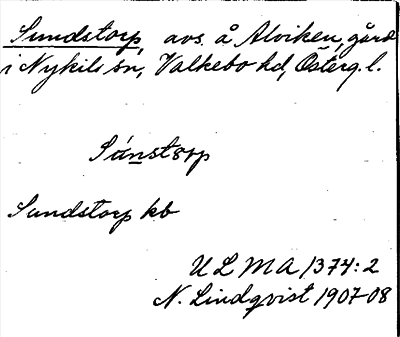 Sundstorp, avs. å Alviken, gård
i Nykils sn, Valkebo hd, Österg. l.
Sú̱nstorp
Sundstorp kb
ULMA 1374:2
N. Lindqvist 1907-08